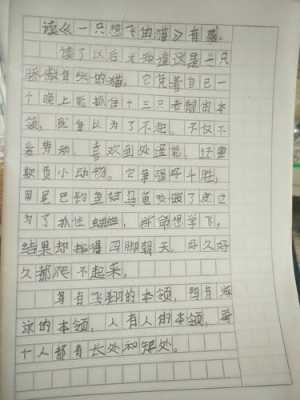 读《一只想飞的猫》有感
读了以后才知道这是一只
骄傲自大的猫。它凭着自己一
个晚上能抓住十三只老鼠的本
领，就自以为了不起。不仅不
爱劳动，喜欢到处逞能，还要
欺负小动物。它争强好胜，
用尾巴钓鱼被鱼咬
为了抓住蝴蝶，所能想学飞，
结果却摔得四脚朝天，好久好
久都爬不起来。
鸟有飞翔的本领，鸭有游
泳的本领，人有人的本领，每
个人都有长处和短处。